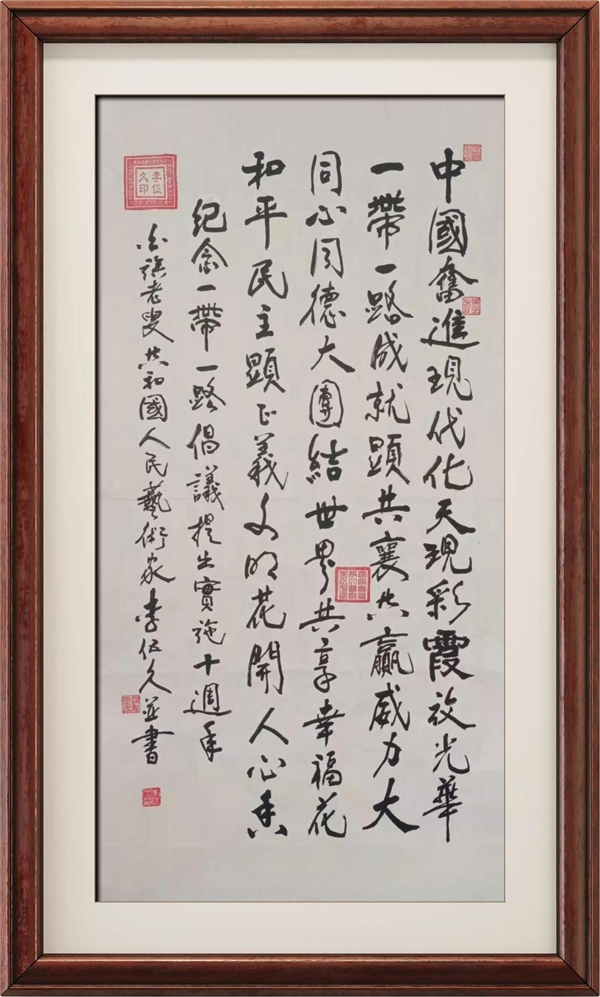 中國奮進現代化天現彩霞放光華
一帶一路成就顯共襄共贏威力大
同心同德大團結世界共享幸福花
和平民主顯正義文明花開人心香
紀念一帶一路倡議提出實施十週年
白族老叟共和國人民藝術家李久並書